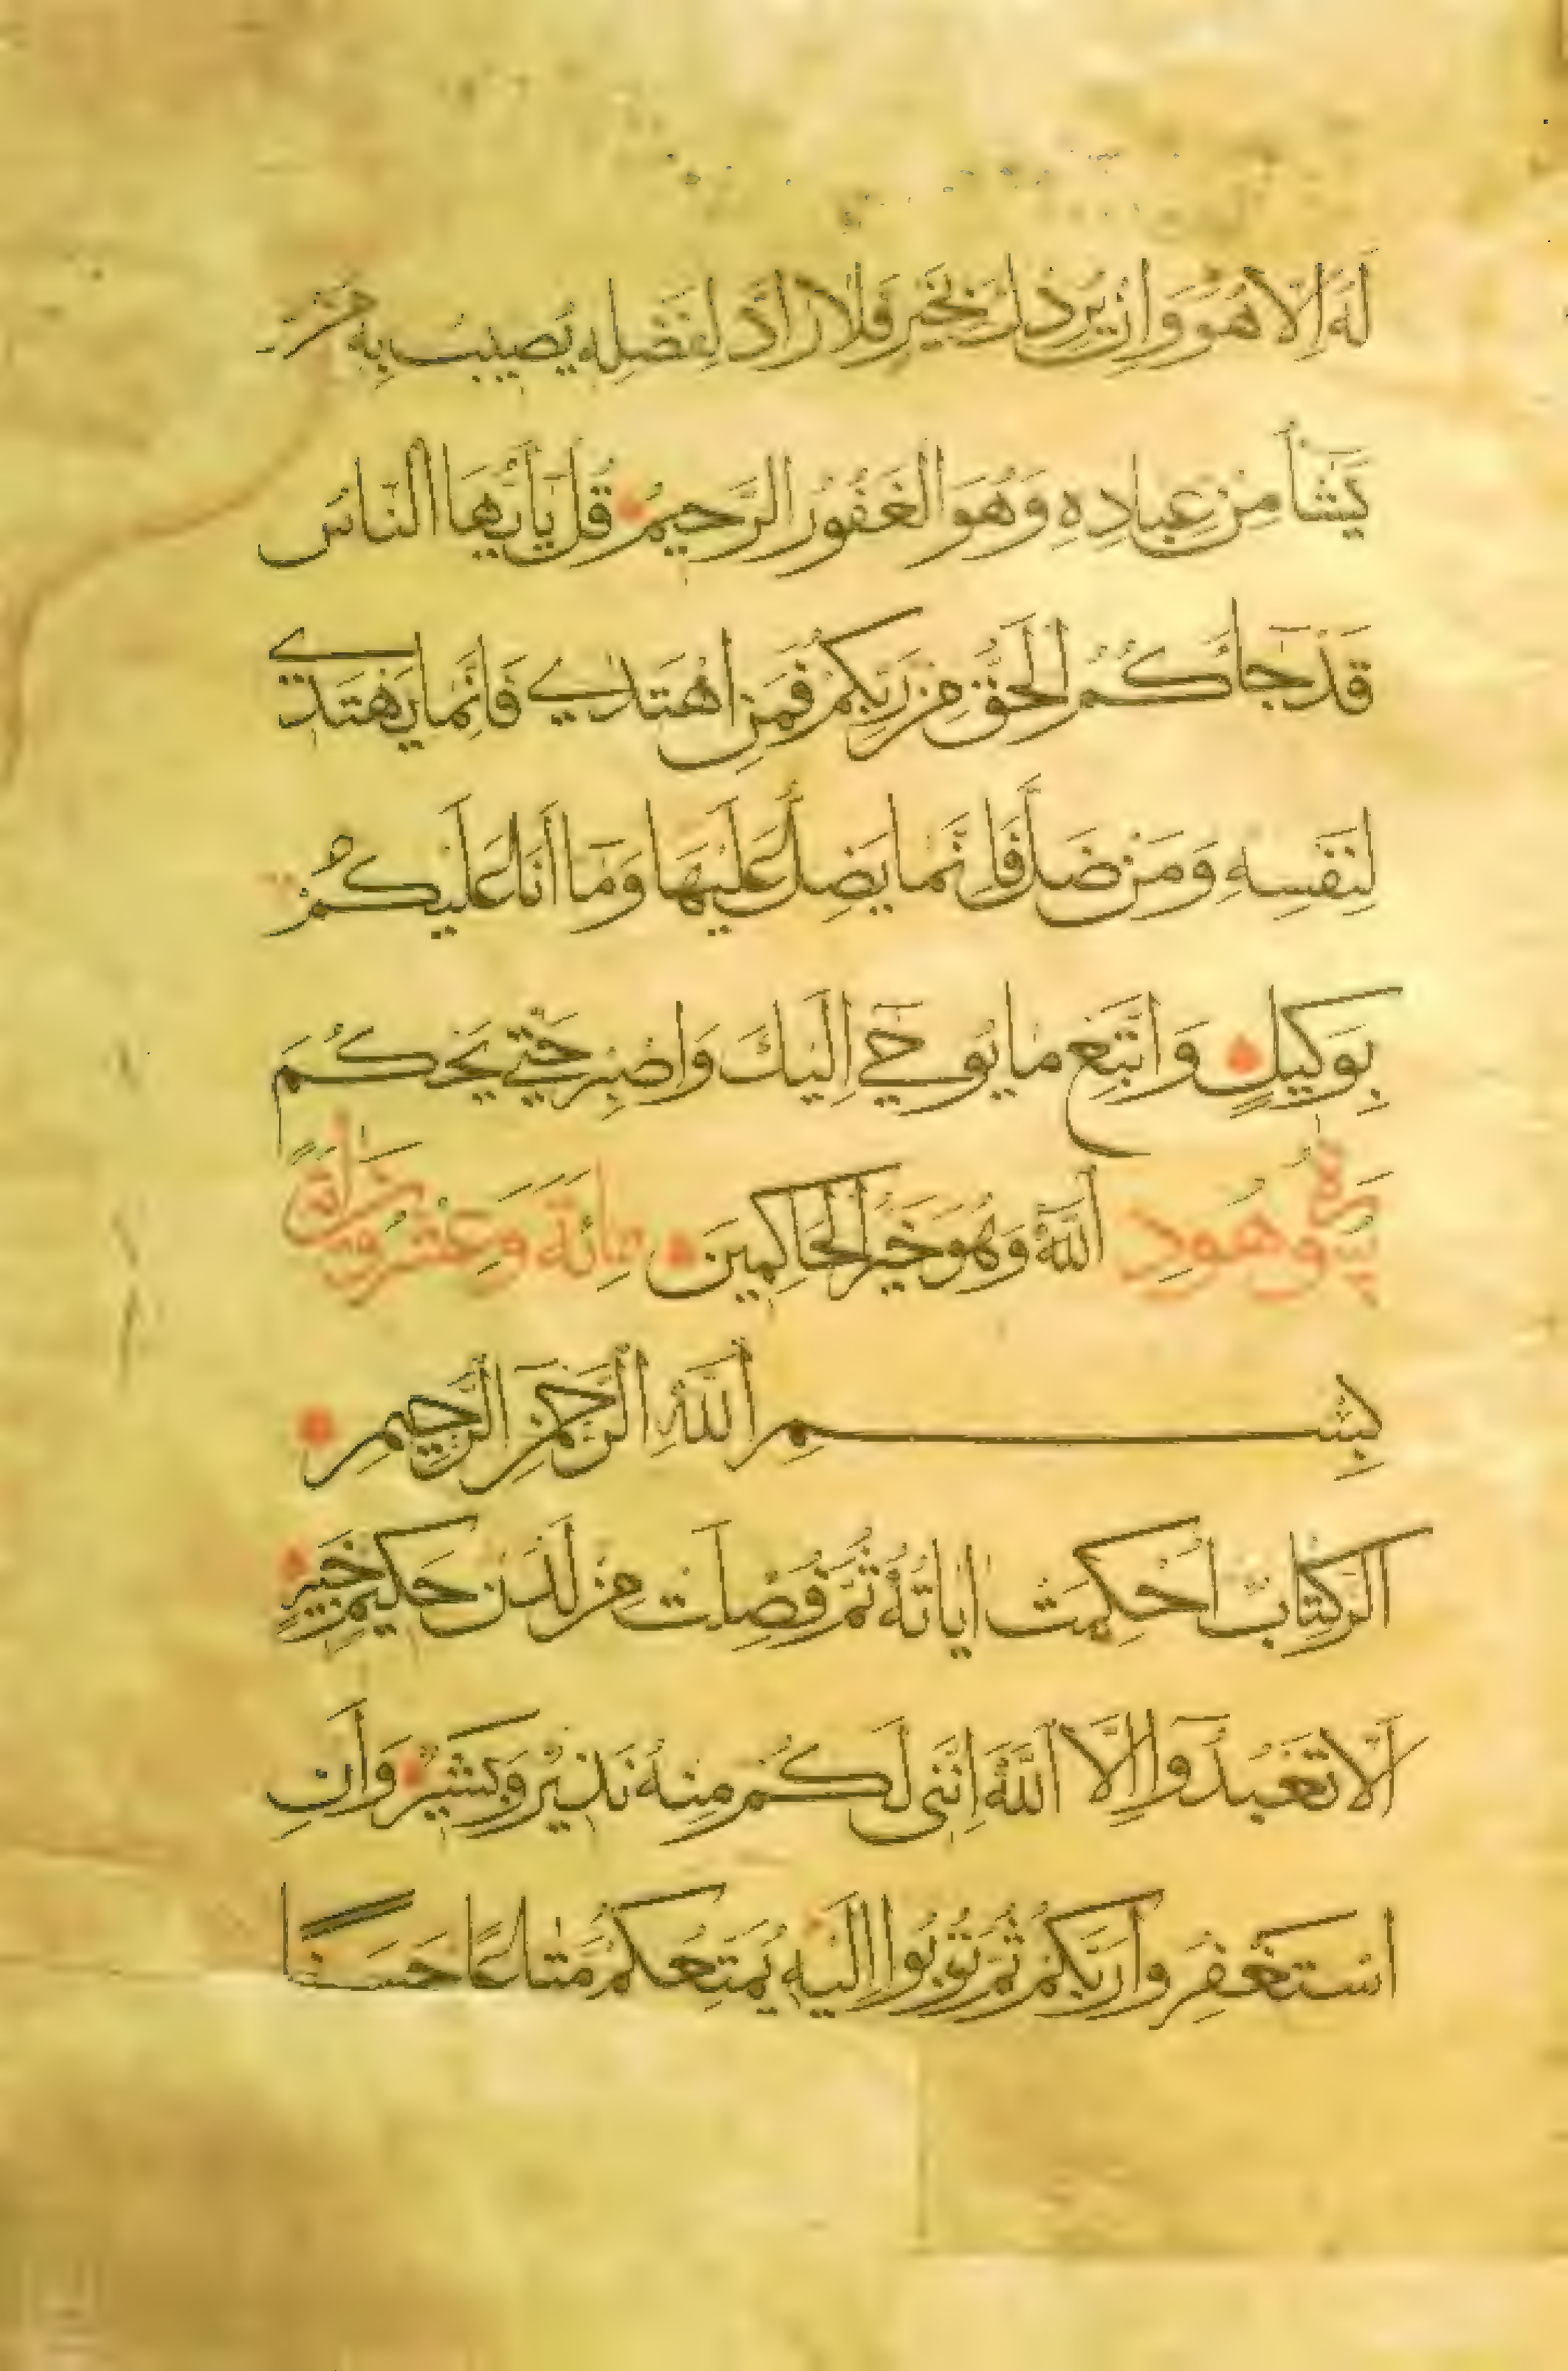 لَهُ إِلَّا هُوَ وَإِنْ يُرِدْكَ بِخَيْرٍ فَلَا رَادَّ لِفَضْلِهِ يُصِيبُ بِهِ مَنْ
يَشَآءُ مِنْ عِبَادِهِ وَهُوَ الْغَفُورُ الرَّحِيمُ قُلْ يَا أَيُّهَا النَّاسُ
قَدْ جَآءَكُمُ الْحَقُّ مِنْ رَبِّكُمْ فَمَنِ اهْتَدَى فَإِنَّمَا يَهْتَدِي
لِنَفْسِهِ وَمَنْ ضَلَّ فَإِنَّمَا يَضِلُّ عَلَيْهَا وَمَا أَنَا عَلَيْكُمْ
بِوَكِيلٍ وَاتَّبِعْ مَا يُوحَى إِلَيْكَ وَاصْبِرْ حَتَّى يَحْكُمَ
سورة هود اللَّهُ وَهُوَ خَيْرُ الْحَاكِمِينَ مائة وعشرون
بِسْمِ اللَّهِ الرَّحْمَنِ الرَّحِيمِ
الر كِتَابٌ أُحْكِمَتْ آيَاتُهُ ثُمَّ فُصِّلَتْ مِنْ لَدُنْ حَكِيمٍ خَبِيرٍ
أَلَّا تَعْبُدُوا إِلَّا اللَّهَ إِنَّنِي لَكُمْ مِنْهُ نَذِيرٌ وَبَشِيرٌ وَأَنِ
اسْتَغْفِرُوا رَبَّكُمْ ثُمَّ تُوبُوا إِلَيْهِ يُمَتِّعْكُمْ مَتَاعًا حَسَنًا